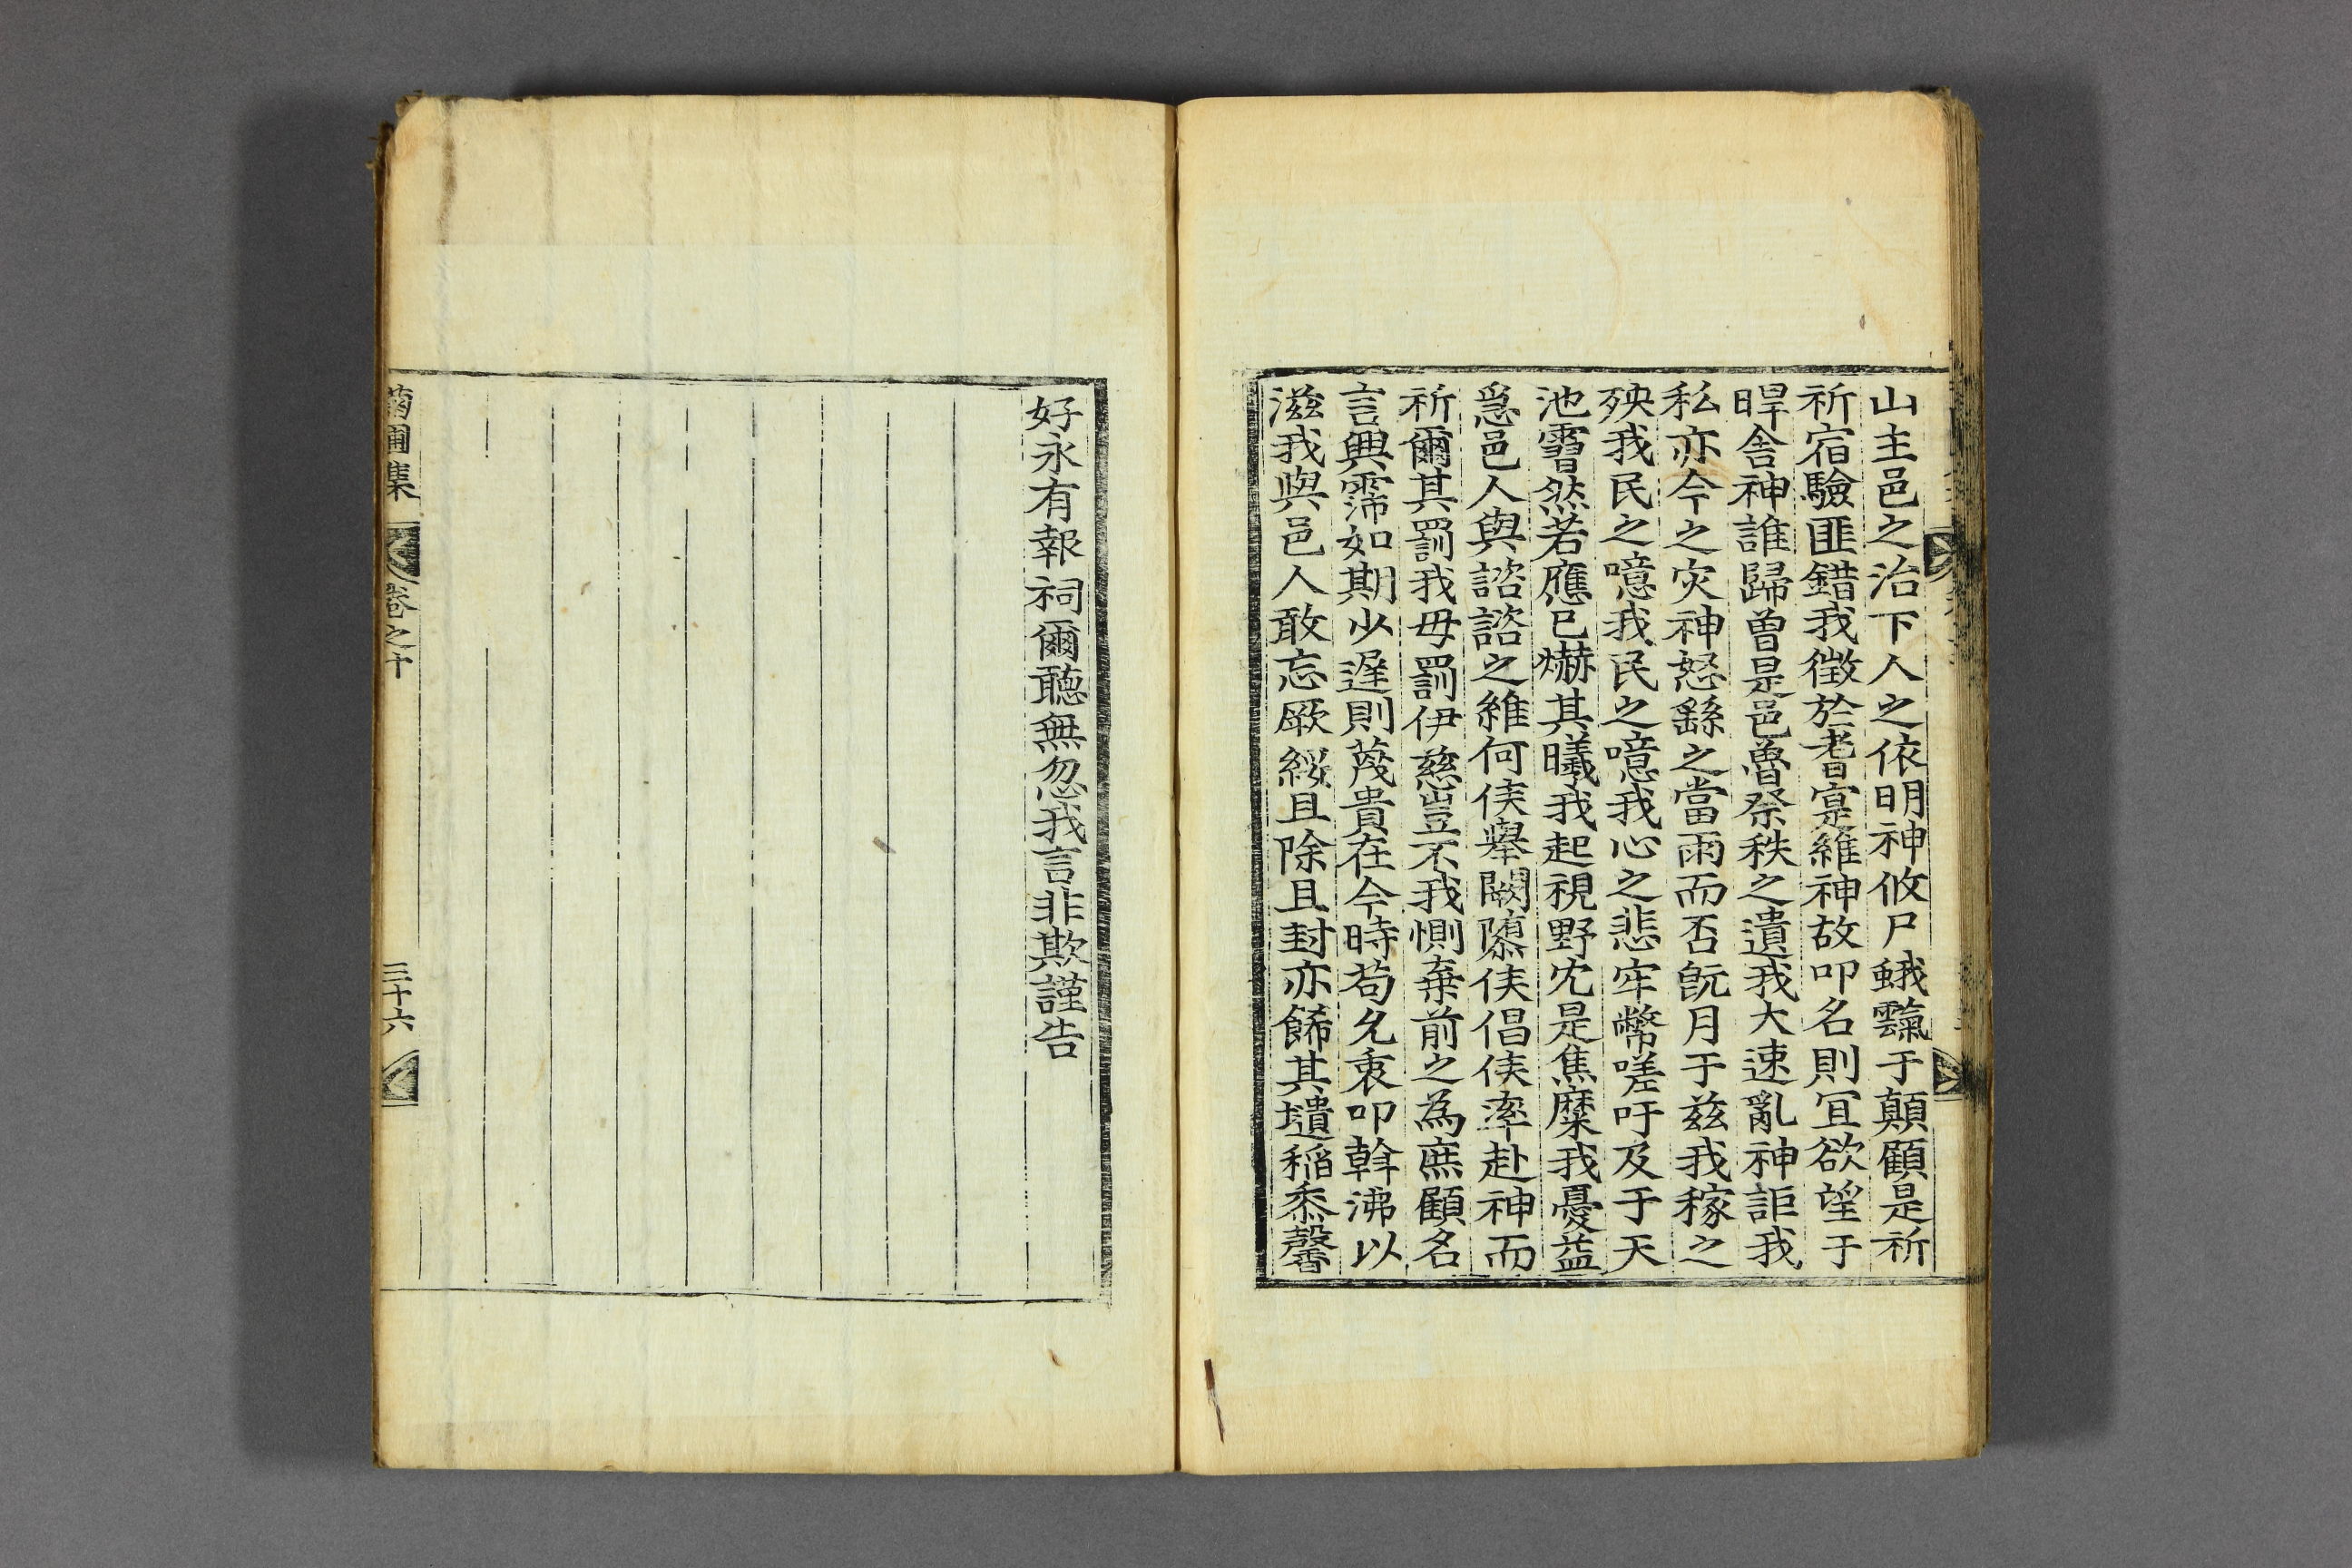 山主邑之治下人之依明神攸尸蛾䨠于顛顧是祈
祈宿驗匪錯我徵於耆寔維神故叩名則冝欲望于
睅舍神誰歸曾是邑魯祭秩之遺我大速亂神詎我
私亦今之灾神怒繇之當雨而否旣月于玆我稼之
殃我民之噫我民之噫我心之悲牢幣嗟吁及于天
池霅然若應已爀其曦我起視野冘是焦糜我憂益
急邑人與諮諮之維何俟舉闕隳俟倡俟率赴神而
祈爾其罰我毋罰伊慈豈不我惻棄前之為庶顧名
言興霈如期少遲則蔑貴在今時苟允衷叩斡沸以
滋我與邑人敢忘厥綏且除且封亦餙其壝稲黍馨
好永有報祠爾聽無忽我言非欺謹告
菊圃集 卷之十 三十六